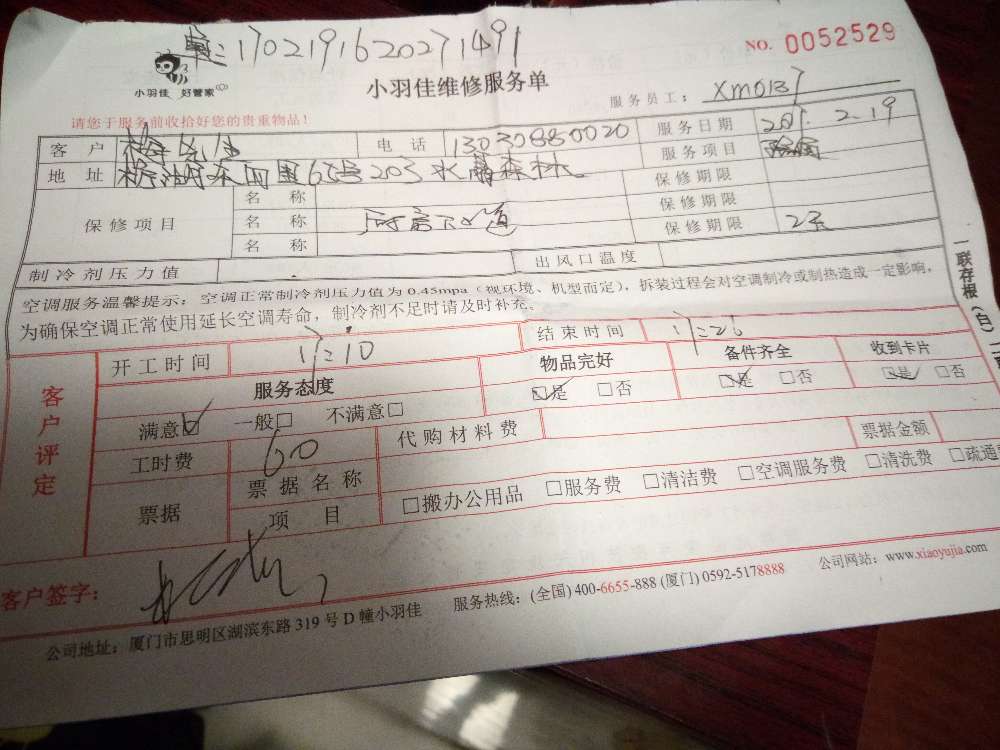 单:1702191620271491
NO. 0052529
小羽佳 好管家
小羽佳维修服务单
服务员工: XM0137
请您于服务前收拾好您的贵重物品!
客户 先生 电话 13030880020 服务日期 2017.2.19
地址 65号203 水晶森林 服务项目
保修项目 名称 保修期限
名称 厨房下水道 保修期限
名称 保修期限 2天
制冷剂压力值 出风口温度
空调服务温馨提示:空调正常制冷剂压力值为0.45mpa(视环境、机型而定),拆装过程会对空调制冷或制热造成一定影响,
为确保空调正常使用延长空调寿命,制冷剂不足时请及时补充。
一联存根(白)
客户评定
开工时间 17:10 结束时间
服务态度 物品完好 备件齐全 收到卡片
满意☑ 一般□ 不满意□ ☑是 □否 ☑是 □否 ☑是 □否
工时费 60 代购材料费 票据金额
票据 票据名称
项目 □搬办公用品 □服务费 □清洁费 □空调服务费 □清洗费 □疏通
客户签字:
公司地址:厦门市思明区湖滨东路319号D幢小羽佳 服务热线:(全国)400-6655-888 (厦门)0592-5178888 公司网站:www.xiaoyujia.com